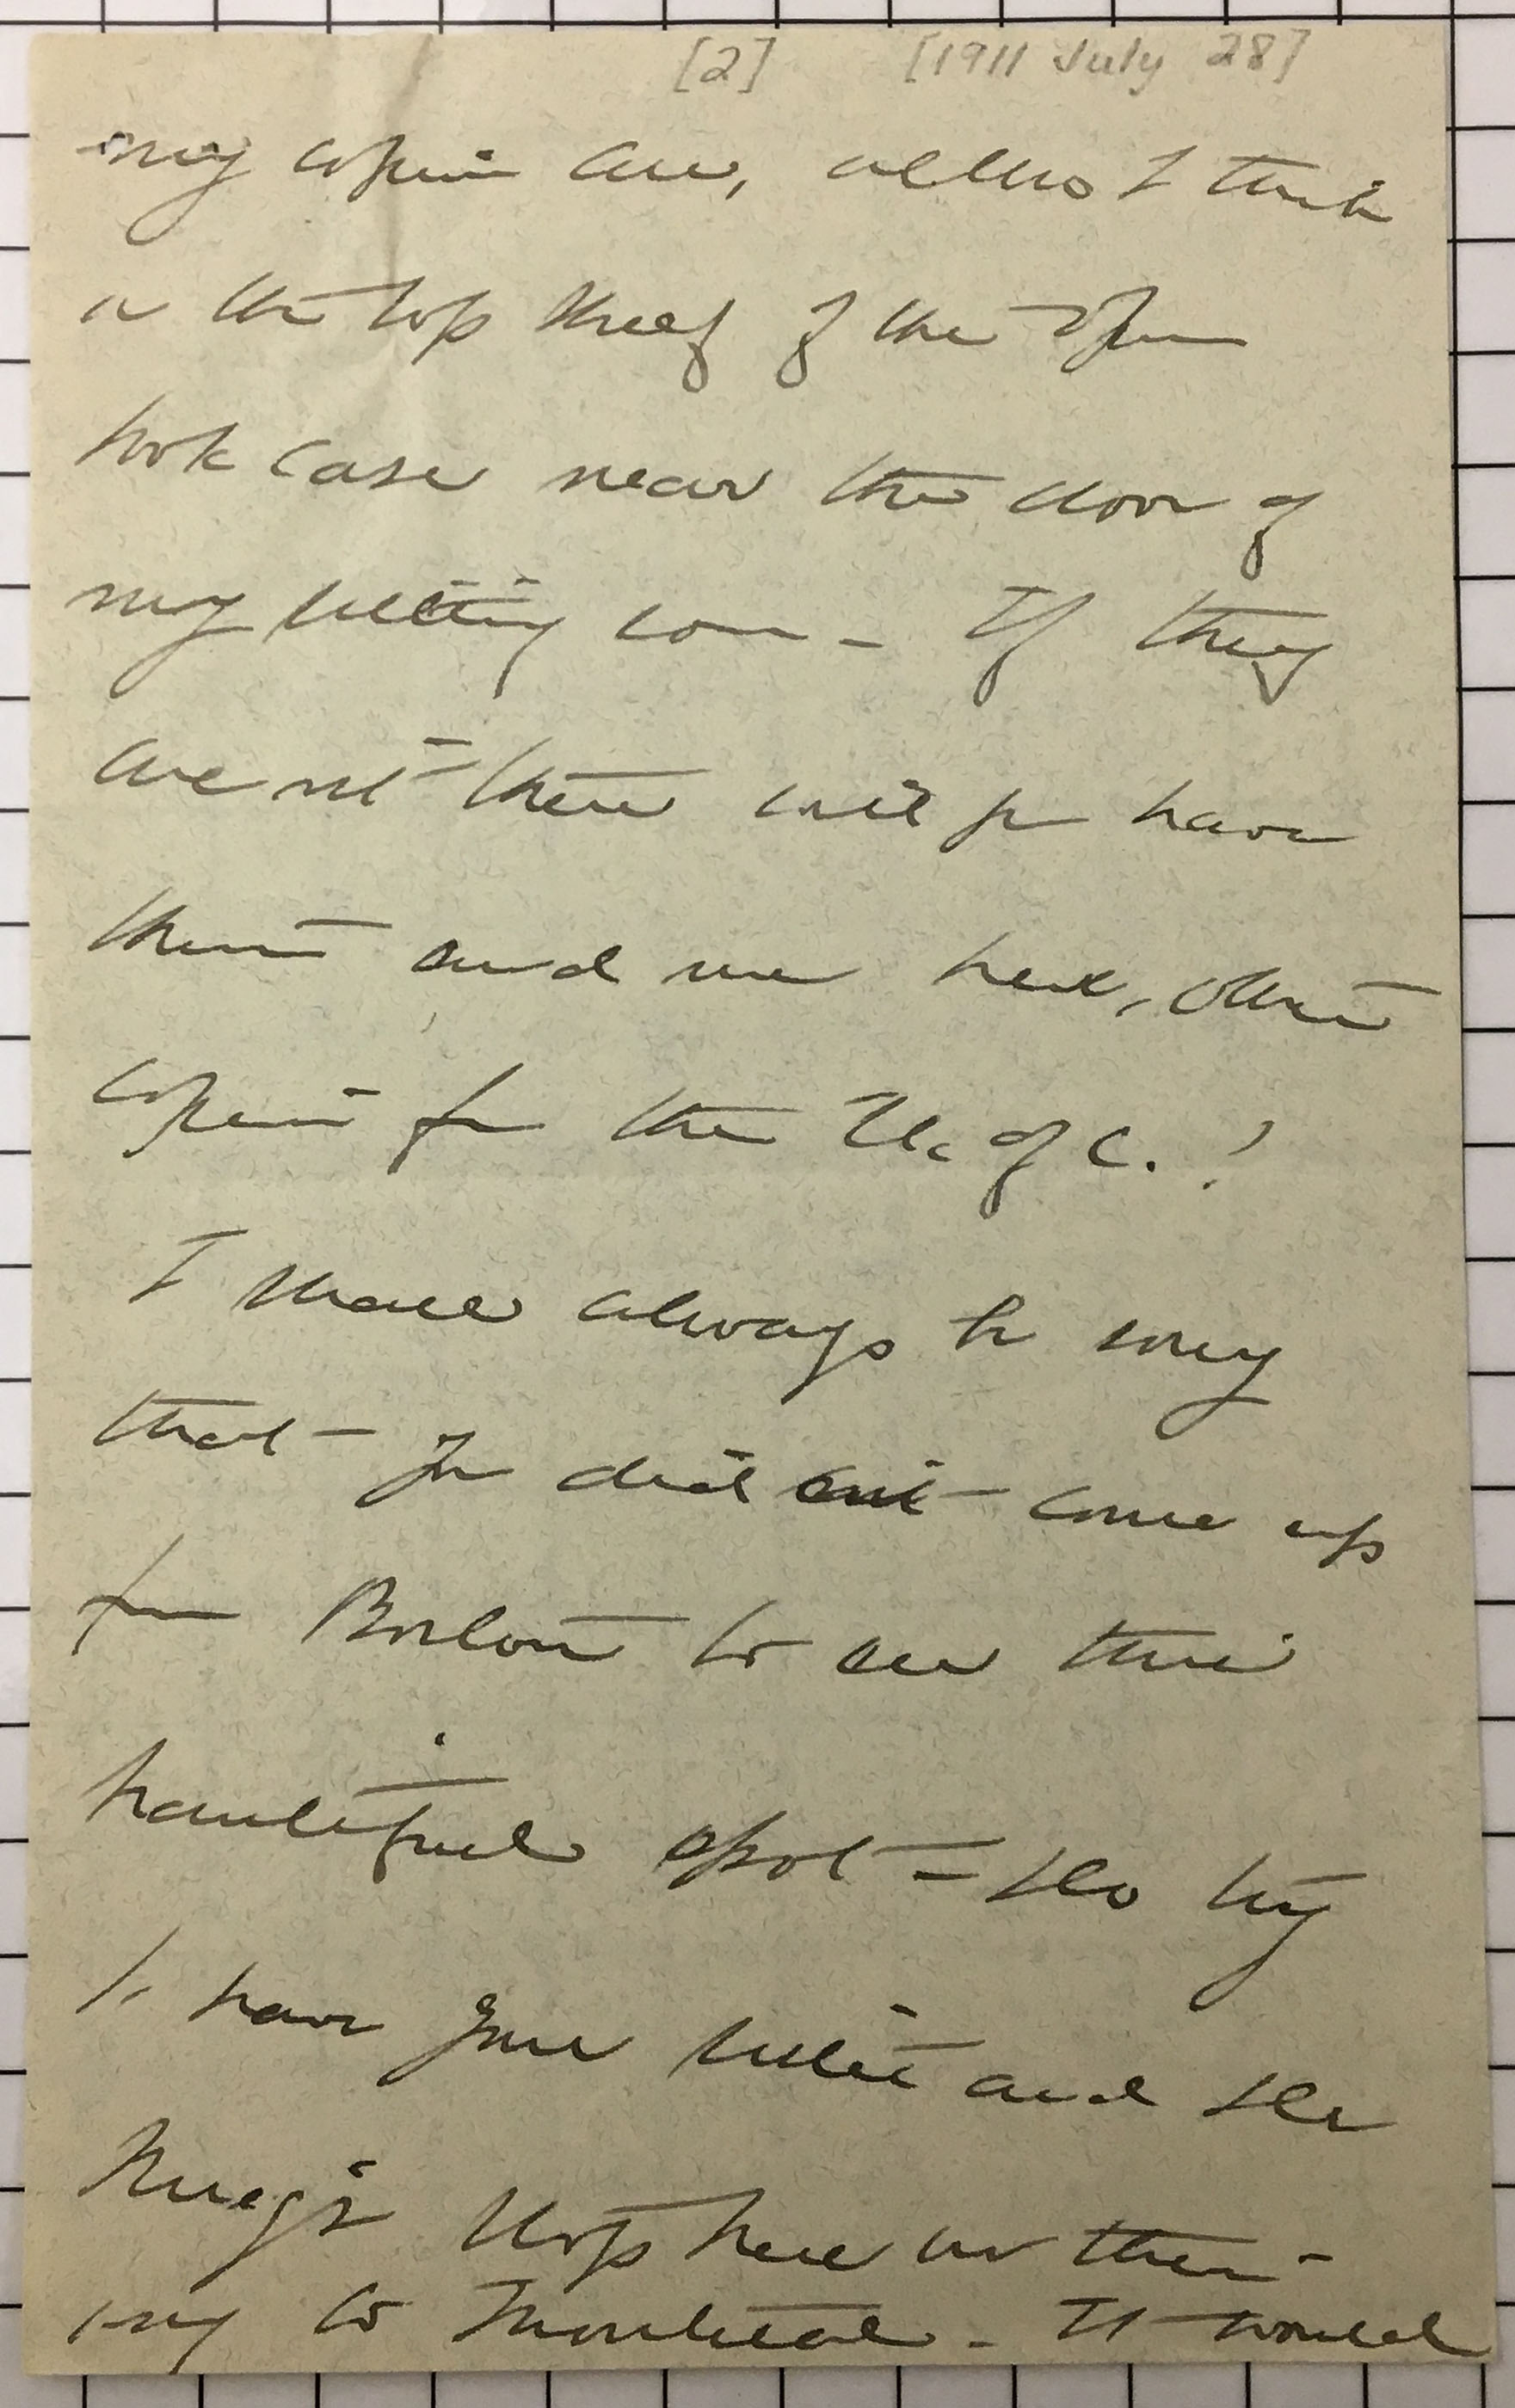 [2] [1911 July 28]
my copies are, altho I think
in the top shelf of the open
book case near the door of
my sitting room - If they
are not there will you have
them send me here, other
copies for the U. of C. ?
I shall always be sorry
that you did not come up
from Boston to see this
beautiful spot - Do try
to have your sister and the
stop here on their
way to Montreal - It would